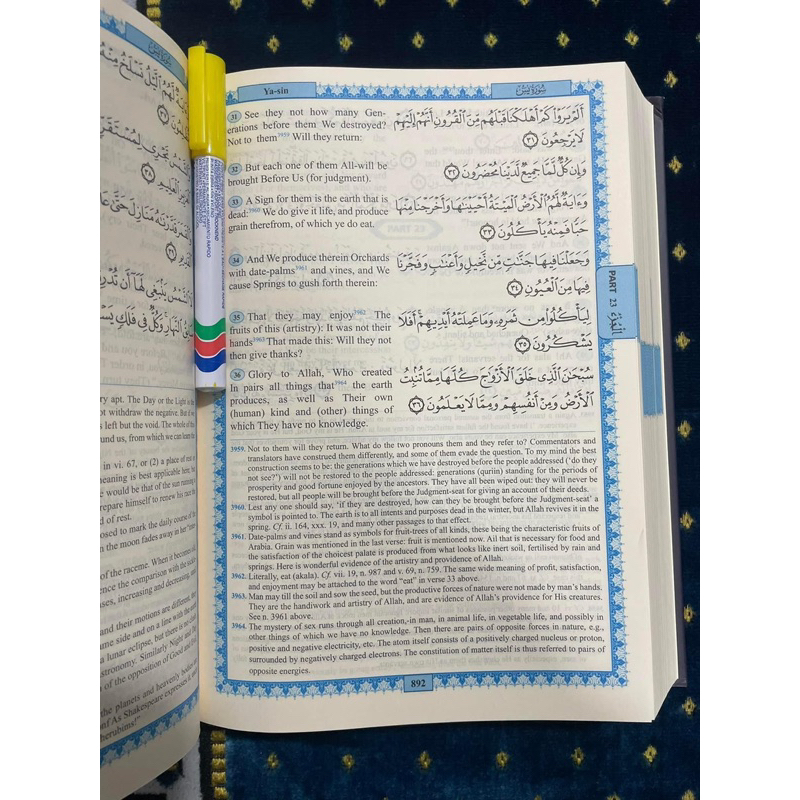 ry apt. The Day or the Light is the
ot withdraw the negative. But if we
left but the void. The whole of the
und us, from which we can learn the
in vi. 67, or (2) a place of rest
eaning is best applicable here, the
e would be that of the sun running a
repare himself to renew his race the
d of rest.
osed to mark the daily course of the
n the moon fades away in her "inter
of the raceme. When it becomes old,
ence the comparison with the sickle
ases, increasing and decreasing, and
and their motions are different, the
ame side and on a line with the
a lunar eclipse, but there is no clash
stronomy. Similarly Night and
l of the opposition of Good and
the planets and heavenly bodies
of As Shakespeare expresses it
herubims!"
Ya-sin
سُورَةُ يسٓ
31 See they not how many Gen-
erations before them We destroyed?
Not to them3959 Will they return:
أَلَمْ يَرَوْا كَمْ أَهْلَكْنَا قَبْلَهُم مِّنَ ٱلْقُرُونِ أَنَّهُمْ إِلَيْهِمْ
لَا يَرْجِعُونَ ٣١
32 But each one of them All-will be
brought Before Us (for judgment).
وَإِن كُلٌّ لَّمَّا جَمِيعٌ لَّدَيْنَا مُحْضَرُونَ ٣٢
33 A Sign for them is the earth that is
dead:3960 We do give it life, and produce
grain therefrom, of which ye do eat.
وَءَايَةٌ لَّهُمُ ٱلْأَرْضُ ٱلْمَيْتَةُ أَحْيَيْنَٰهَا وَأَخْرَجْنَا مِنْهَا
حَبًّا فَمِنْهُ يَأْكُلُونَ ٣٣
34 And We produce therein Orchards
with date-palms3961 and vines, and We
cause Springs to gush forth therein:
وَجَعَلْنَا فِيهَا جَنَّٰتٍ مِّن نَّخِيلٍ وَأَعْنَٰبٍ وَفَجَّرْنَا
فِيهَا مِنَ ٱلْعُيُونِ ٣٤
35 That they may enjoy3962 The
fruits of this (artistry): It was not their
hands3963 That made this: Will they not
then give thanks?
لِيَأْكُلُوا۟ مِن ثَمَرِهِۦ وَمَا عَمِلَتْهُ أَيْدِيهِمْ أَفَلَا
يَشْكُرُونَ ٣٥
36 Glory to Allah, Who created
In pairs all things that3964 the earth
produces, as well as Their own
(human) kind and (other) things of
which They have no knowledge.
سُبْحَٰنَ ٱلَّذِى خَلَقَ ٱلْأَزْوَٰجَ كُلَّهَا مِمَّا تُنۢبِتُ
ٱلْأَرْضُ وَمِنْ أَنفُسِهِمْ وَمِمَّا لَا يَعْلَمُونَ ٣٦
PART 23 الجُزْءُ
3959. Not to them will they return. What do the two pronouns them and they refer to? Commentators and
translators have construed them differently, and some of them evade the question. To my mind the best
construction seems to be: the generations which we have destroyed before the people addressed ('do they
not see?') will not be restored to the people addressed: generations (qurūn) standing for the periods of
prosperity and good fortune enjoyed by the ancestors. They have all been wiped out: they will never be
restored, but all people will be brought before the Judgment-seat for giving an account of their deeds.
3960. Lest any one should say, 'if they are destroyed, how can they be brought before the Judgment-seat' a
symbol is pointed to. The earth is to all intents and purposes dead in the winter, but Allah revives it in the
spring. Cf. ii. 164, xxx. 19, and many other passages to that effect.
3961. Date-palms and vines stand as symbols for fruit-trees of all kinds, these being the characteristic fruits of
Arabia. Grain was mentioned in the last verse: fruit is mentioned now. Ail that is necessary for food and
the satisfaction of the choicest palate is produced from what looks like inert soil, fertilised by rain and
springs. Here is wonderful evidence of the artistry and providence of Allah.
3962. Literally, eat (akala). Cf. vii. 19, n. 987 and v. 69, n. 759. The same wide meaning of profit, satisfaction,
and enjoyment may be attached to the word "eat" in verse 33 above.
3963. Man may till the soil and sow the seed, but the productive forces of nature were not made by man's hands.
They are the handiwork and artistry of Allah, and are evidence of Allah's providence for His creatures.
See n. 3961 above.
3964. The mystery of sex runs through all creation,-in man, in animal life, in vegetable life, and possibly in
other things of which we have no knowledge. Then there are pairs of opposite forces in nature, e.g.,
positive and negative electricity, etc. The atom itself consists of a positively charged nucleus or proton,
surrounded by negatively charged electrons. The constitution of matter itself is thus referred to pairs of
opposite energies.
892